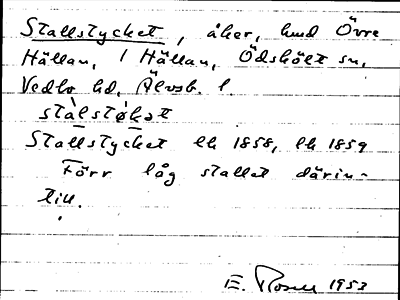 Stallstycket, åker, hmd Övre
Hällan, 1 Hällan, Ödskölt sn,
Vedbo hd, Älvsb. l.
stàlstøkət
Stallstycket lh 1858, lh 1859
Förr låg stallet därin-
till.
E. Rosell 1953